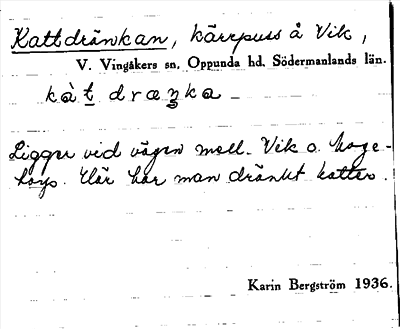 Kattdränkan, kärrpuss å Vik,
V. Vingåkers sn. Oppunda hd. Södermanlands län.
kàt dræŋka
Ligger vid vägen mell. Vik o. Hage-
torp. Här har man dränkt katter.
Karin Bergström 1936.